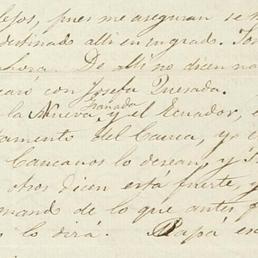 lejos, pues me aseguran se h
destinado alli en un grado. Tom
ahora. De Ali no dicen na
caró con Josefa Quesada.
la Nueva Granada, y el Ecuador, e
tamento del Cauca, yo c
Caucanos lo desean, y s
otros dicen está fuerte, y
mando de lo que antes f
s lo dirá. Papá en